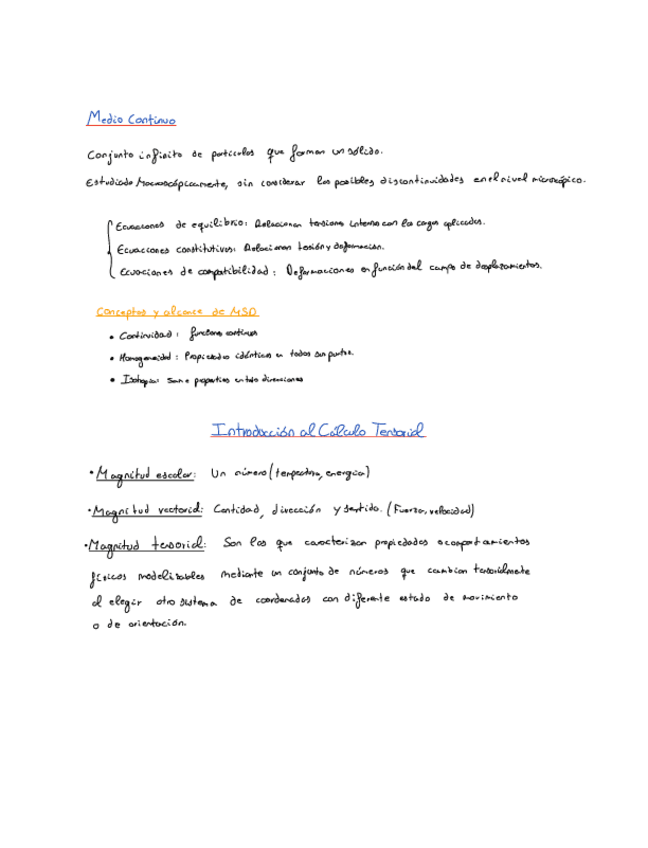 Medio Continuo
Conjunto infinito de partículas que forman un sólido.
Estudiado Macroscópicamente, sin considerar las posibles discontinuidades en el nivel microscópico.
Ecuaciones de equilibrio: Relacionan tensiones internas con las cargas aplicadas.
Ecuaciones constitutivas: Relacionan tensión y deformación.
Ecuaciones de compatibilidad: Deformaciones en función del campo de desplazamientos.
Conceptos y alcance de MSD
• Continuidad: funciones continuas
• Homogeneidad: Propiedades idénticas en todos sus puntos.
• Isotropía: Same properties en todas direcciones
Introducción al Cálculo Tensorial
• Magnitud escalar: Un número (temperatura, energía)
• Magnitud vectorial: Cantidad, dirección y sentido. (Fuerza, velocidad)
• Magnitud tensorial: Son las que caracterizan propiedades o comportamientos
físicos modelizables mediante un conjunto de números que cambian tensorialmente
al elegir otro sistema de coordenadas con diferente estado de movimiento
o de orientación.